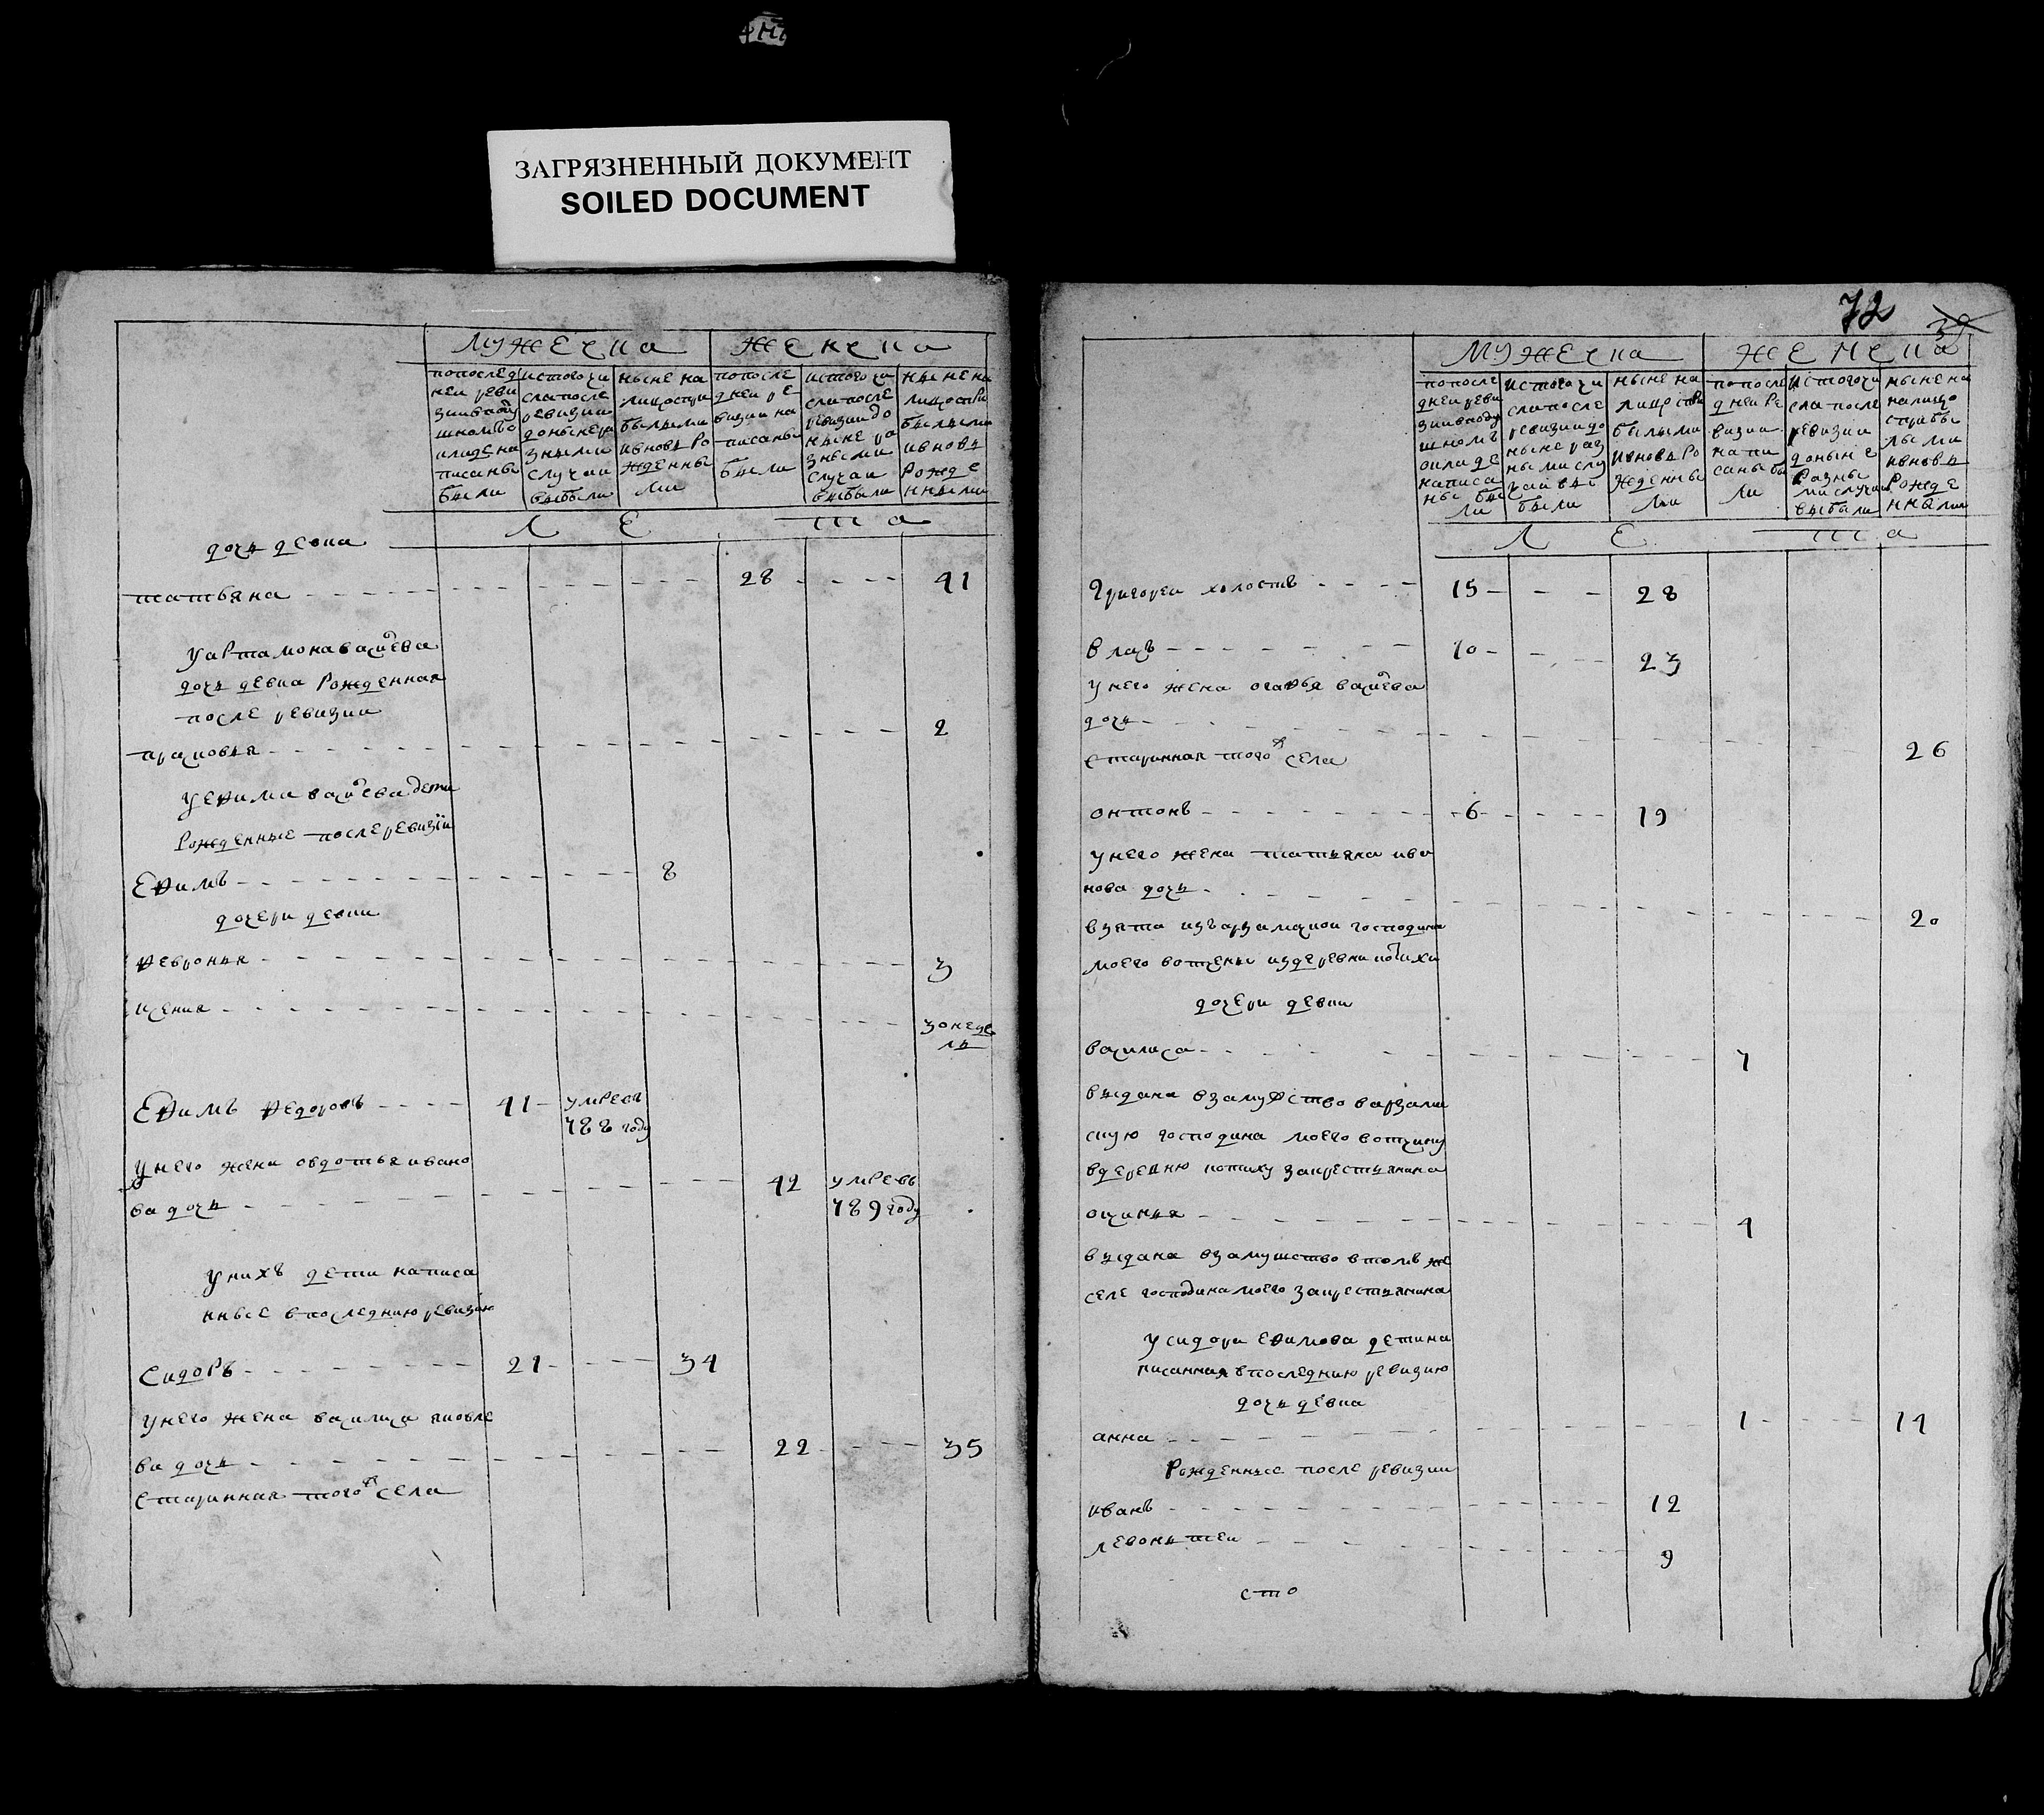 ЗАГРЯЗНЕННЫЙ ДОКУМЕНТ
SOILED DOCUMENT
мужеска женска
попослед неи реви зии вподу шном ок ладе на писаны были
истого чи сла после ревизии до ныне ра зными случаи выбыли
ныне на лицо стри былыми и вновь ро жденны ми
попосле дней ре визии на писаны были
истого чи сла после ревизии до ныне ра зными случаи выбыли
ныне на лицо стри былыми и вновь рожде нными
ле та
дочь девка
татьяна 28 41
у артамона васильева
дочь девка рожденная
после ревизии
прасковья 2
у ефима васильева дети
рожденные после ревизіи
ефимъ 8
дочери девки
февронья 3
ксения 30 неде
ль
ефимъ федоровъ 41 умревъ
788 году
у него жена овдотья ивано
ва дочь 42 умревъ
789 году
у нихъ дети написа
нные впоследнюю ревизию
сидоръ 21 34
у него жена василиса яковле
ва дочь 22 35
старинная того ж села
72
39
мужеска женска
попосле дней реви зии вподу шномъ окладе написа ны бы ли
истого чи сла после ревизии до ныне раз ными слу чаи вы были
ныне на лицо стри былыми и вновь ро жденны ми
попосле дней ре визии напи саны бы ли
истого чи сла после ревизии доныне разны ми случаи выбыли
ныне на лицо стрибы лыми и вновь рожде нными
ле та
григореи холостъ 15 28
власъ 10 23
у него жена огафья васильева
дочь
старинная того ж села 26
онтонъ 6 19
у него жена татьяна ива
нова дочь
взята изъ арзамаскои господина 20
моего вотчены из деревни
дочери девки
василиса 7
выдана взамужство варзама
скую господина моего вотчину
вдеревню за крестьянина
оксинья 4
выдана взамушство втомъ же
селе господина моего за крестьянина
у сидора ефимова дети на
писанная впоследнюю ревизию
дочь девка
анна 1 14
рожденные после ревизии
иванъ 12
левоньтеи 9
сто